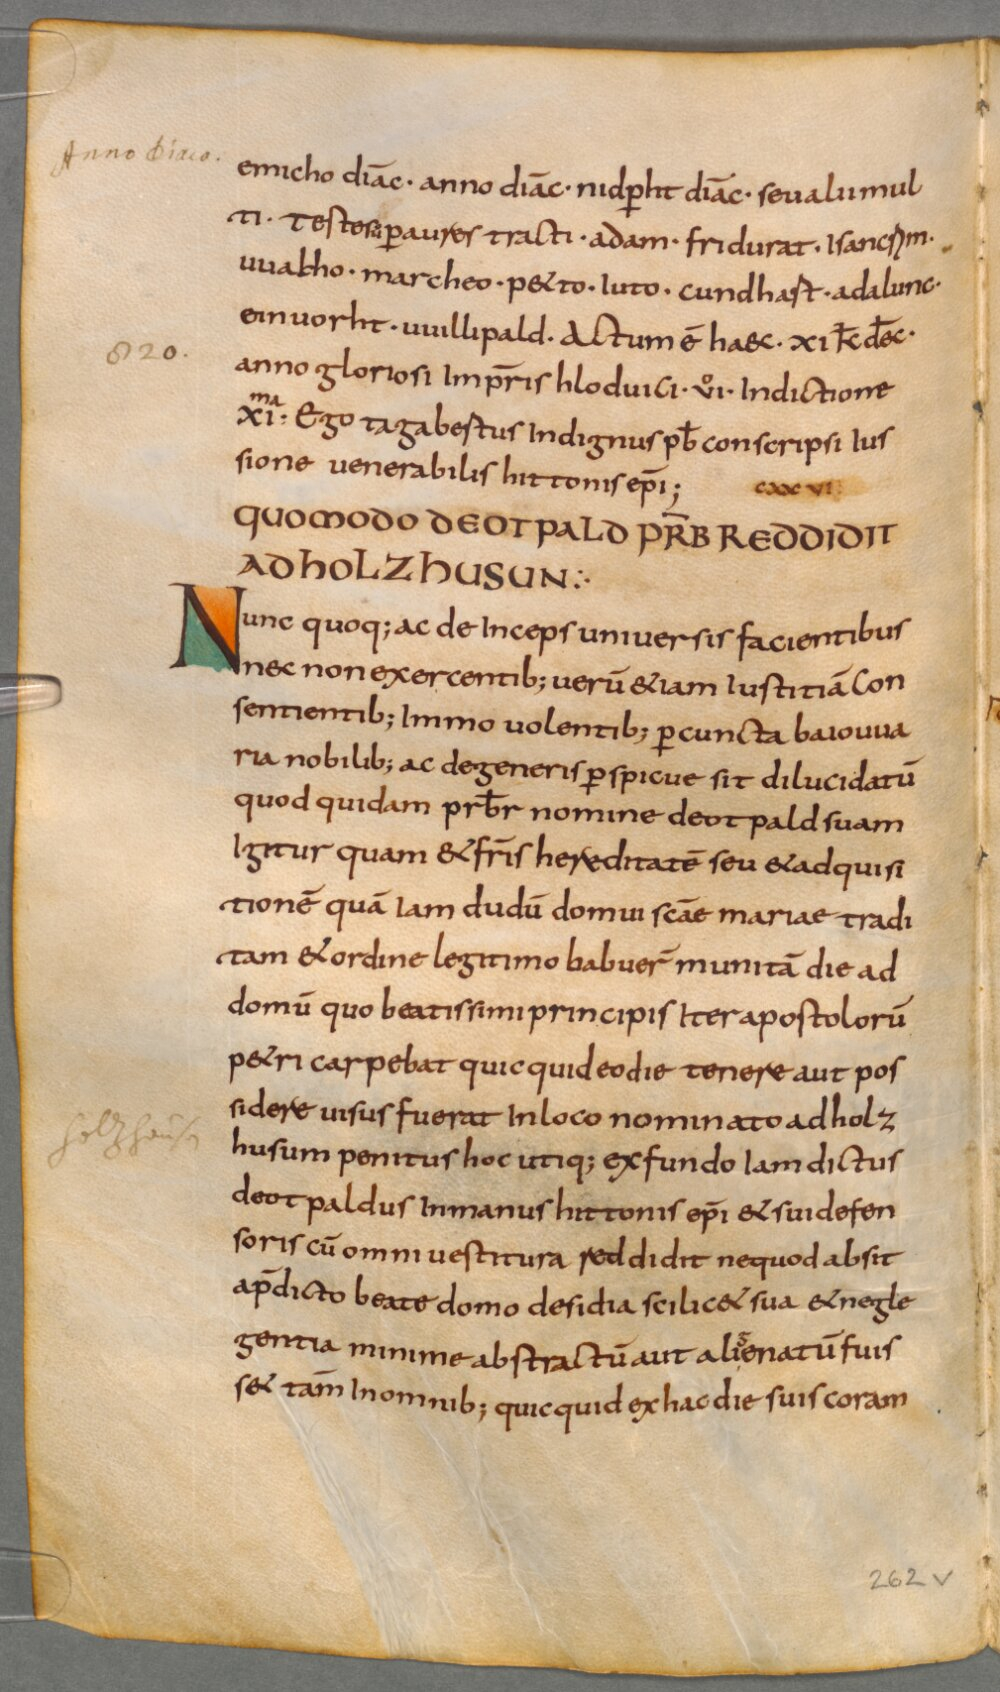 Anno diaco.
emicho diāc· anno diāc· nidp̱ht diāc· seu alii mul
ti· testes p̱ aures tracti· adam· fridurat· Isanc
uualtho· marcheo· p&to· luto· cundhast· adalunc·
einuorht· uuillipald· Actum ē haec· xi kł dec·
820.
anno gloriosi Imp̄ris hloduici· vi· Indictione
xima· Ego tagabestus Indignus pb̄ conscripsi Ius
sione uenerabilis hittonis ep̄i;
QUOMODO DEOTPALD PR̄B REDDIDIT
AD HOLZHUSUN
Nunc quoq; ac deInceps uniuersis facientibus
nec non exercentib; uerū &iam Iustitiā Con
sentientib; Immo uolentib; p̱ cuncta baiouua
ria nobilib; ac degeneris p̱spicue sit dilucidatū
quod quidam prb̄r nomine deotpald suam
Igitur quam & fr̄is hereditatē seu & adquisi
tionē quā Iam dudū domui scāe mariae tradi
tam & ordine legitimo babuer̄ munitā die ad
domū quo beatissimi principis Iter apostolorū
p&ri carpebat quicquid eo die tenere aut pos
sidere uisus fuerat In loco nominato ad holz
holzhausn
husum penitus hoc utiq; ex fundo Iam dictus
deotpaldus In manus hittonis ep̄i & sui defen
soris cū omni uestitura reddidit ne quod absit
a p̄dicto beate domo desidia scilic& sua & negle
gentia minime abstractū aut alienatū fuis
s& tam̄ In omnib; quicquid ex hac die suis coram
262 v